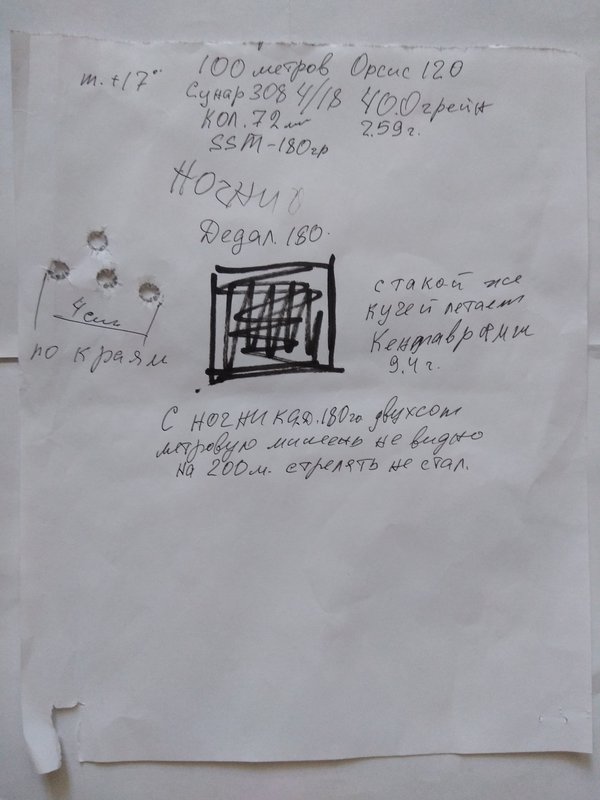 т. +17° 100 метров Орсис 120
Сунар 308 4/18 40.0 грейн
Кол. 72мм 2.59г.
SSM-180гр
Ночник
Дедал. 180.
4см
по краям
с такой же
кучей летает
Кентавр ФМЖ
9.4г.
С НОЧНИКа Д.180го двухсот
метровую мишень не видно
на 200м. стрелять не стал.